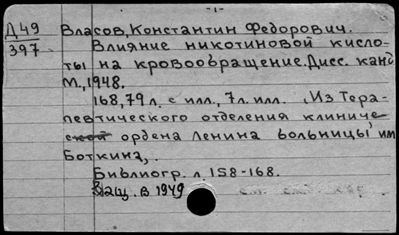 -1-
Д49 Власов, Константин Федорович.
397 Влияние никотиновой кисло-
ты на кровообращение. Дисс. канд
М., 1948.
168,79 л. с илл., 7 л. илл. Из Тера-
певтического отделения клиниче-
ской ордена Ленина больницы им
Боткина,.
Библиогр. л. 158-168.
Защ. в 1949